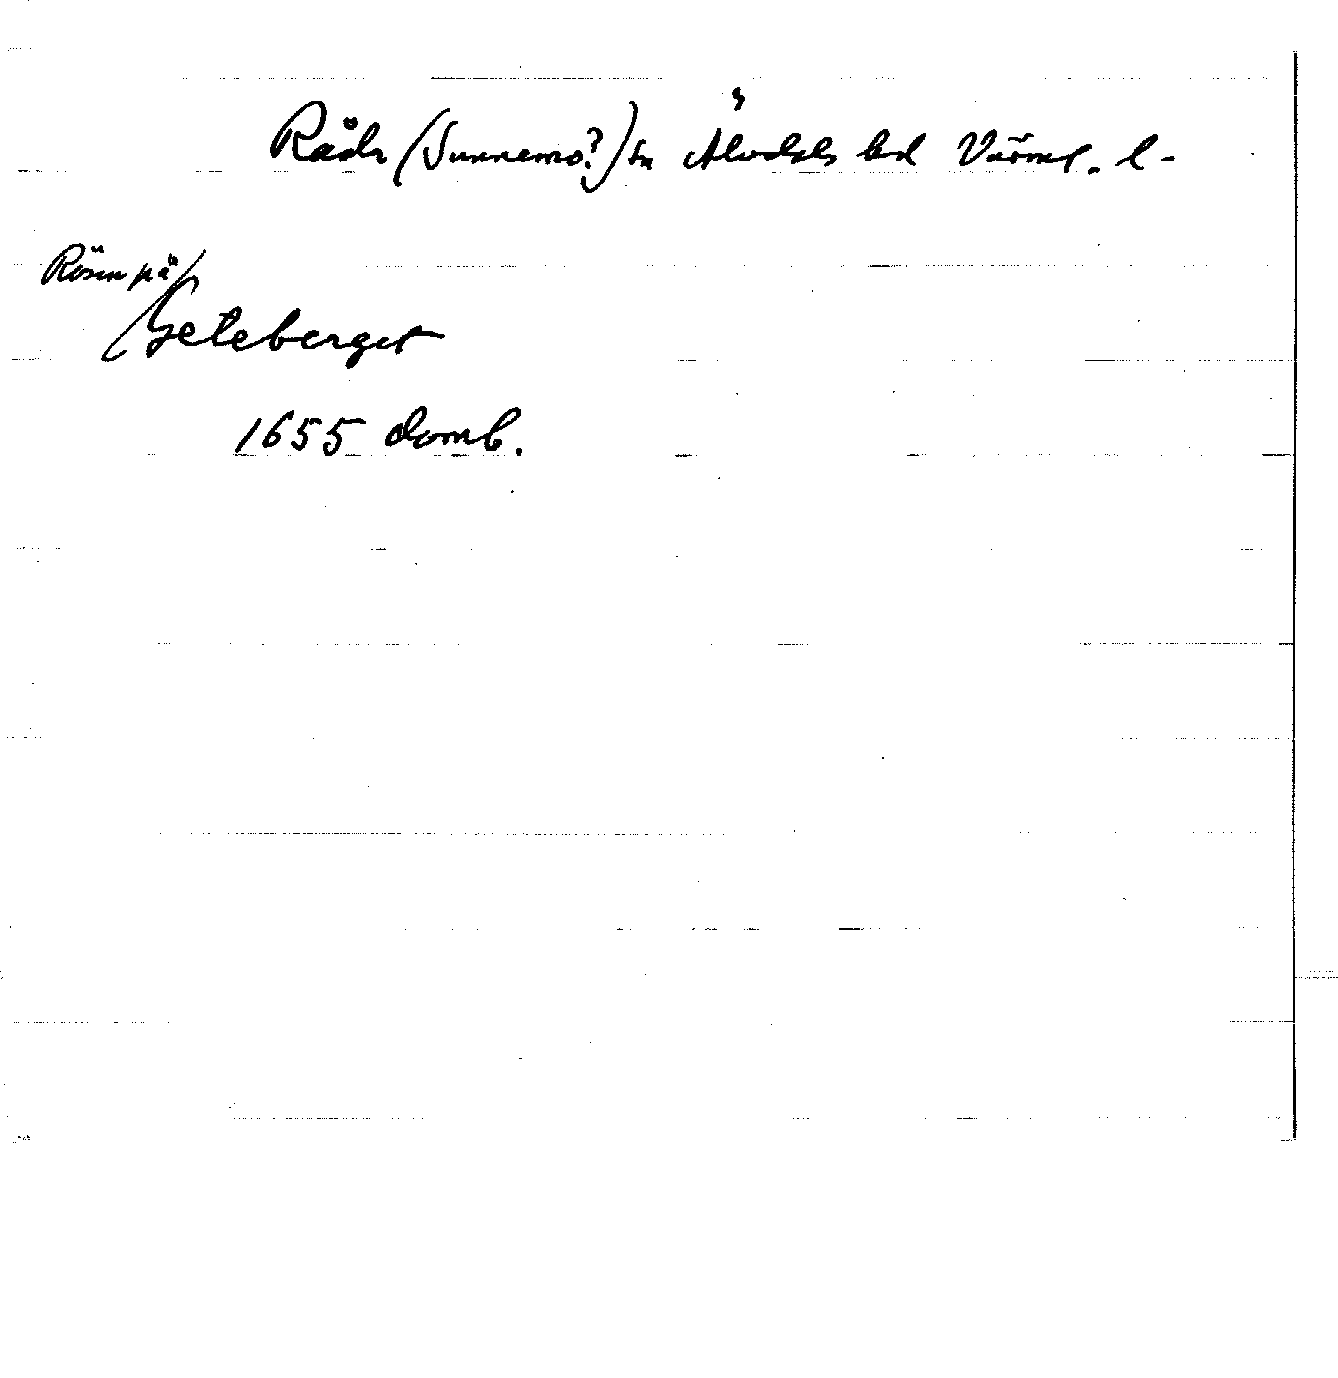 Råda (Sunnemo?) sn Älvdals hd Värml. l-
Rösen på
Geteberget
1655 domb.